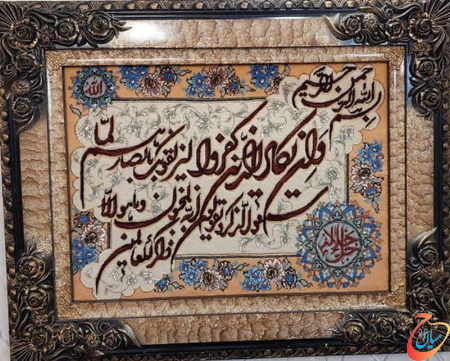 بسم الله الرحمن الرحیم
الله
وان یکاد الذین کفروا لیزلقونک بابصارهم لما
سمعوا الذکر ویقولون انه لمجنون وما هو الا
ذکر للعالمین
جل جلاله